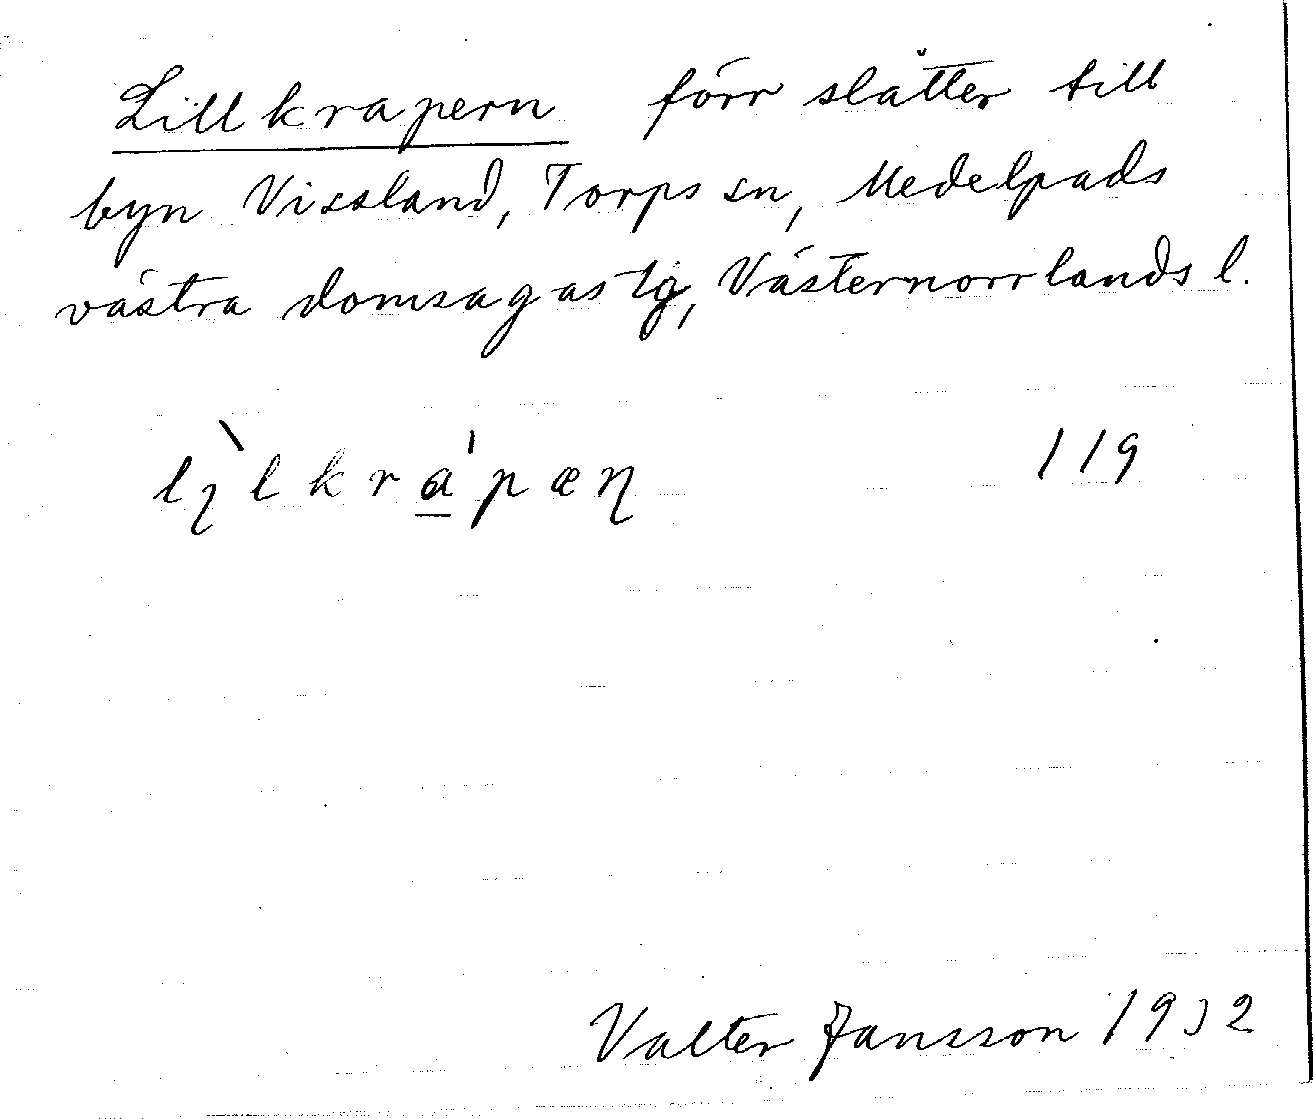 Lillkrapern förr slåtter till
byn Vissland, Torps sn, Medelpads
västra domsagas tg, Västernorrlands l.
lɿ̀lkra̲'pæŋ 119
Valter Jansson 1932